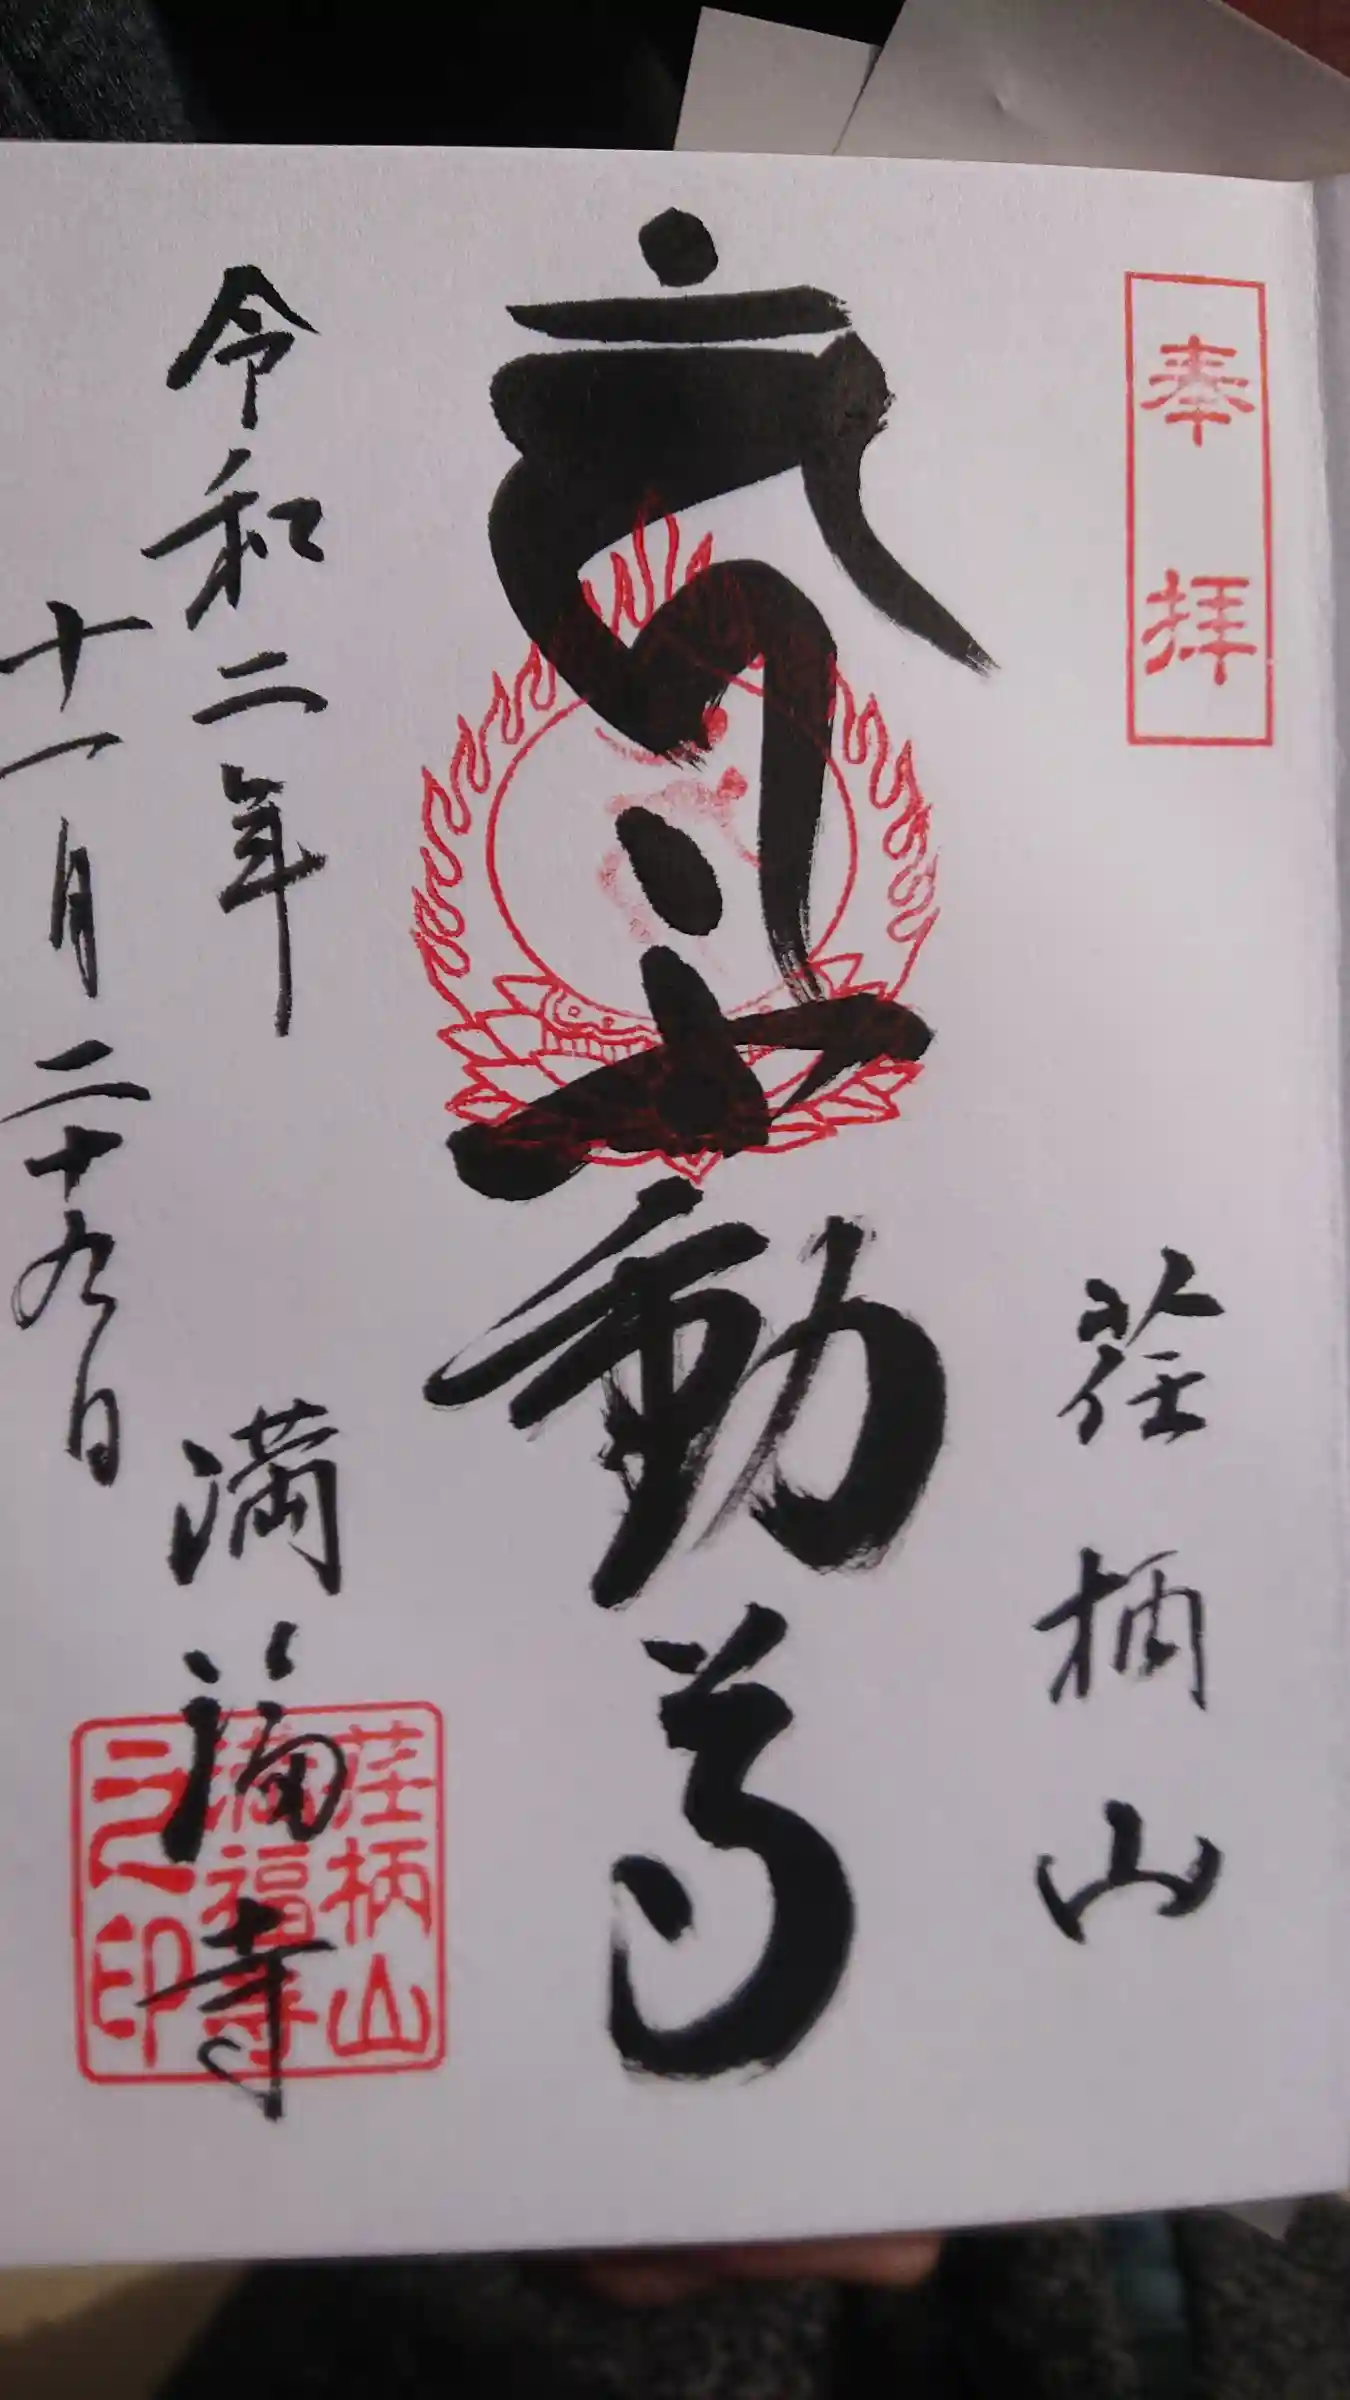 奉拝
荏柄山
不動尊
令和二年
十一月二十九日
満福寺
荏柄山
満福寺
之印